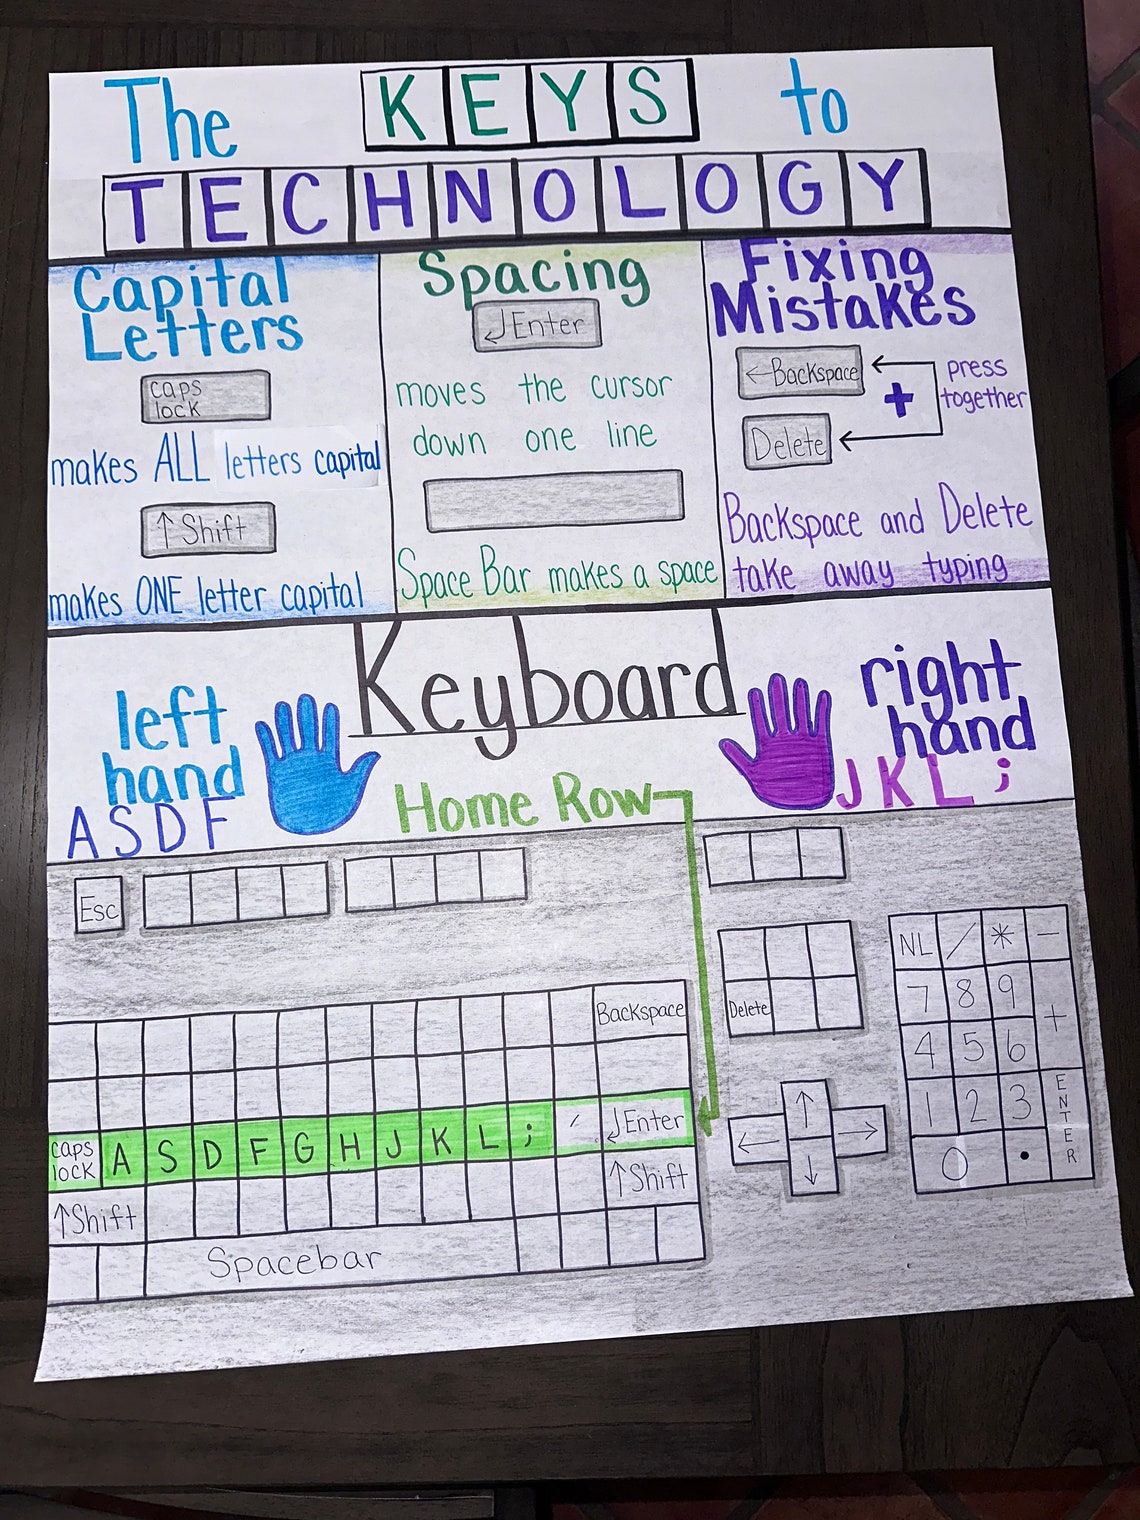 The KEYS to
TECHNOLOGY
Capital
Letters
caps
lock
makes ALL letters capital
↑ Shift
makes ONE letter capital
Spacing
↵ Enter
moves the cursor
down one line
Space Bar makes a space
Fixing
Mistakes
← Backspace
+
Delete
press
together
Backspace and Delete
take away typing
Keyboard
left
hand
A S D F
Home Row
right
hand
J K L ;
Esc
Backspace
caps
lock
A S D F G H J K L ; ' ↵ Enter
↑ Shift
↑ Shift
Spacebar
Delete
↑
← ↓ →
NL / * -
7 8 9 +
4 5 6
1 2 3 ENTER
0 .